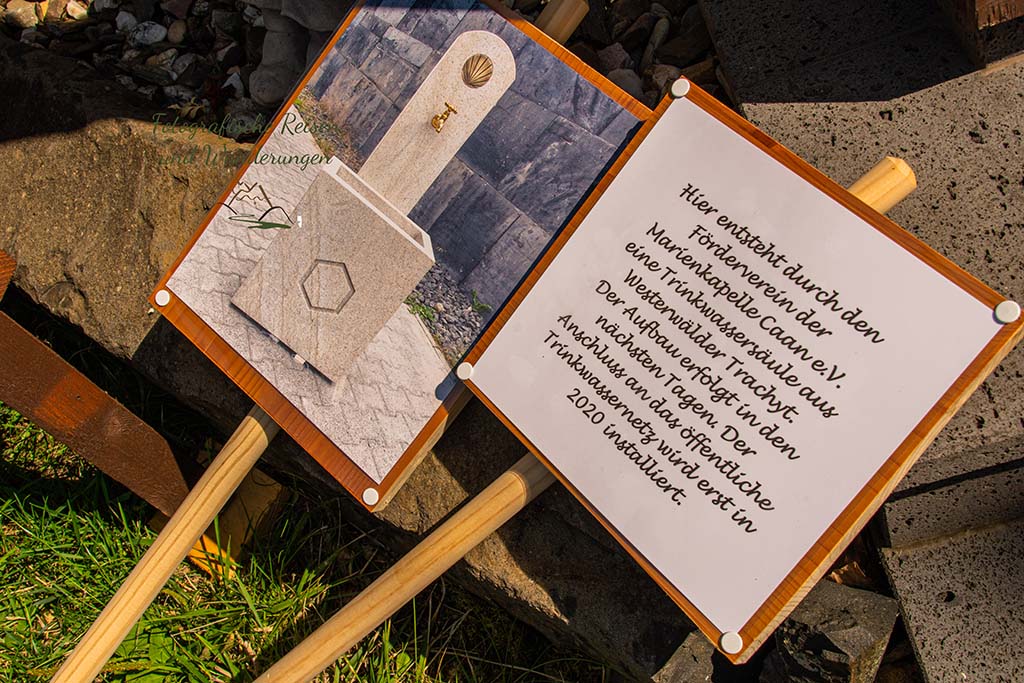 Fotografische Reisen
und Wanderungen
Hier entsteht durch den
Förderverein der
Marienkapelle Caan e.V.
eine Trinkwassersäule aus
Westerwälder Trachyt.
Der Aufbau erfolgt in den
nächsten Tagen. Der
Anschluss an das öffentliche
Trinkwassernetz wird erst in
2020 installiert.